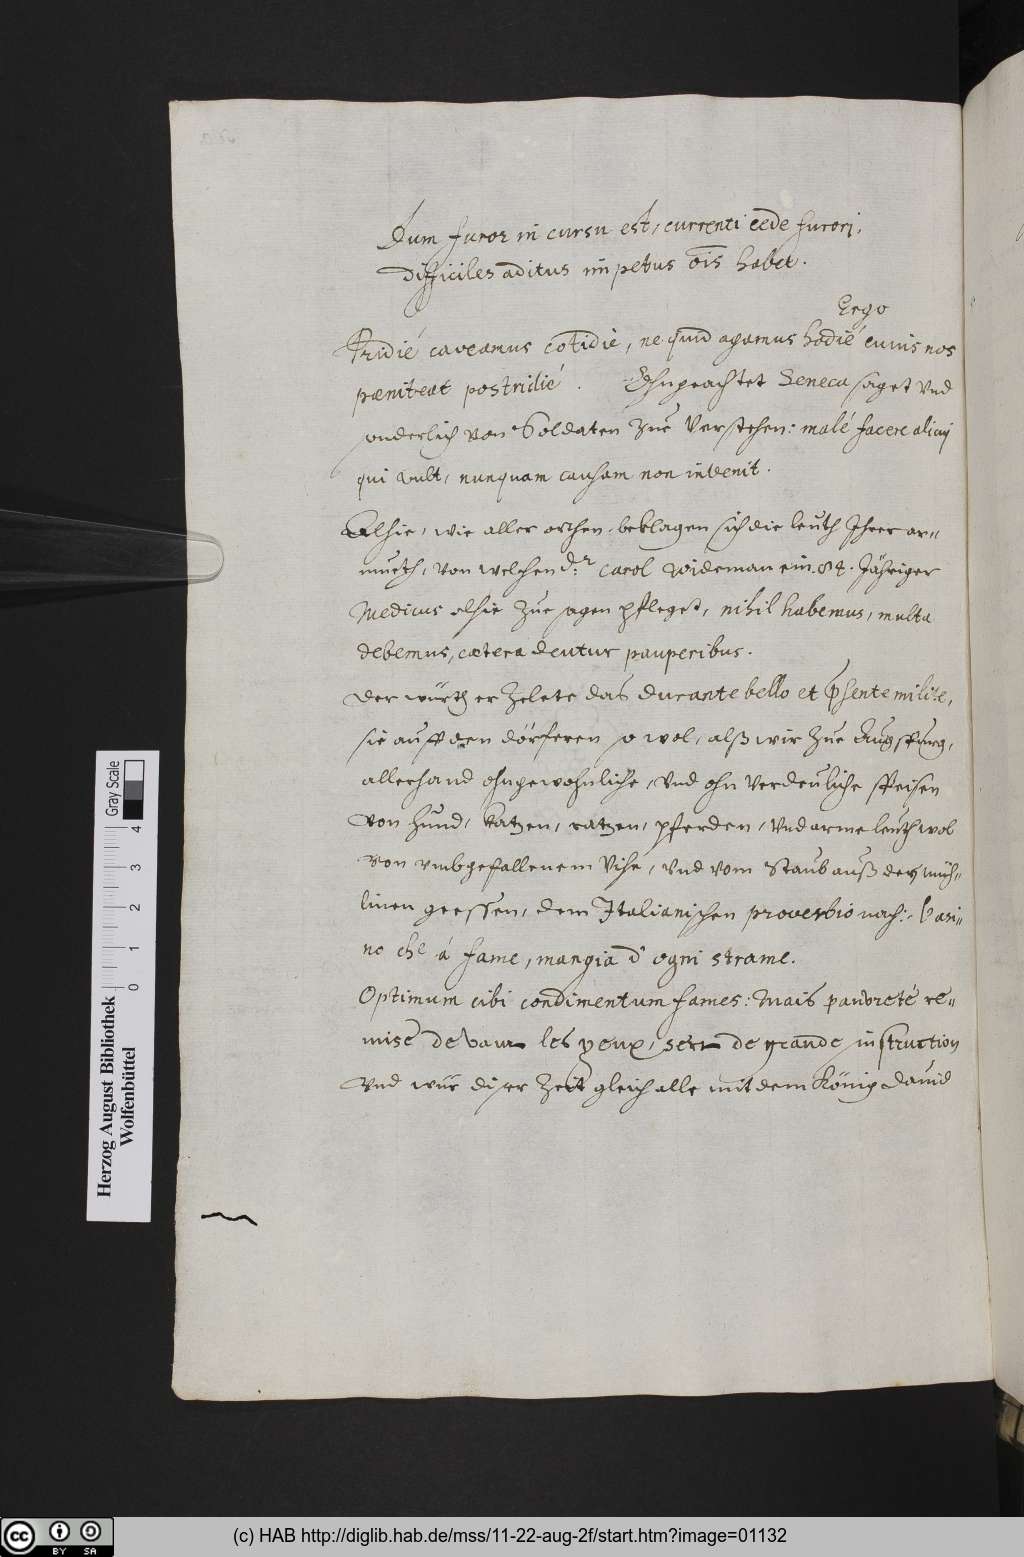 Dum furor in cursu est, currenti cede furori,
Difficiles aditus impetus ois habet.
Ergo
Pridié caveamus cotidié, ne quid agamus hodié cuius nos
pæniteat postridié. Ohngeachtet Seneca saget vnd
sonderlich von Soldaten zue verstehen: malé facere alicui
qui vult, nunquam causam non invenit.
Alhie, wie aller orthen, beklagen sich die leuth Ihrer ar=
mueth, von welchen d:r Carol Wideman ein 84. Jähriger
Medicus alhie zue sagen pfleget, nihil habemus, multa
debemus, cætera dentur pauperibus.
Der würth erzelete das durante bello et psente milite,
sie auff den dörferen so wol, alß wir zue Augspurg,
allerhand ohngewohnliche, vnd ohn verdeuliche speisen
von Hund, Katzen, ratzen, pferden, vnd arme leuth wol
von vmbgefallenem Vihe, vnd vom staub auß den müh=
linen geessen, dem Italianischen proverbio nach: L'asi=
no che á fame, mangia d'ogni strame.
Optimum cibi condimentum fames: Mais pauvreté re=
mise devant les yeux, sert de grande instruction
Vnd wür diser Zeit gleich alle mit dem König David
Herzog August Bibliothek
Wolfenbüttel
Gray Scale
0 1 2 3 4
cc BY SA
(c) HAB http://diglib.hab.de/mss/11-22-aug-2f/start.htm?image=01132